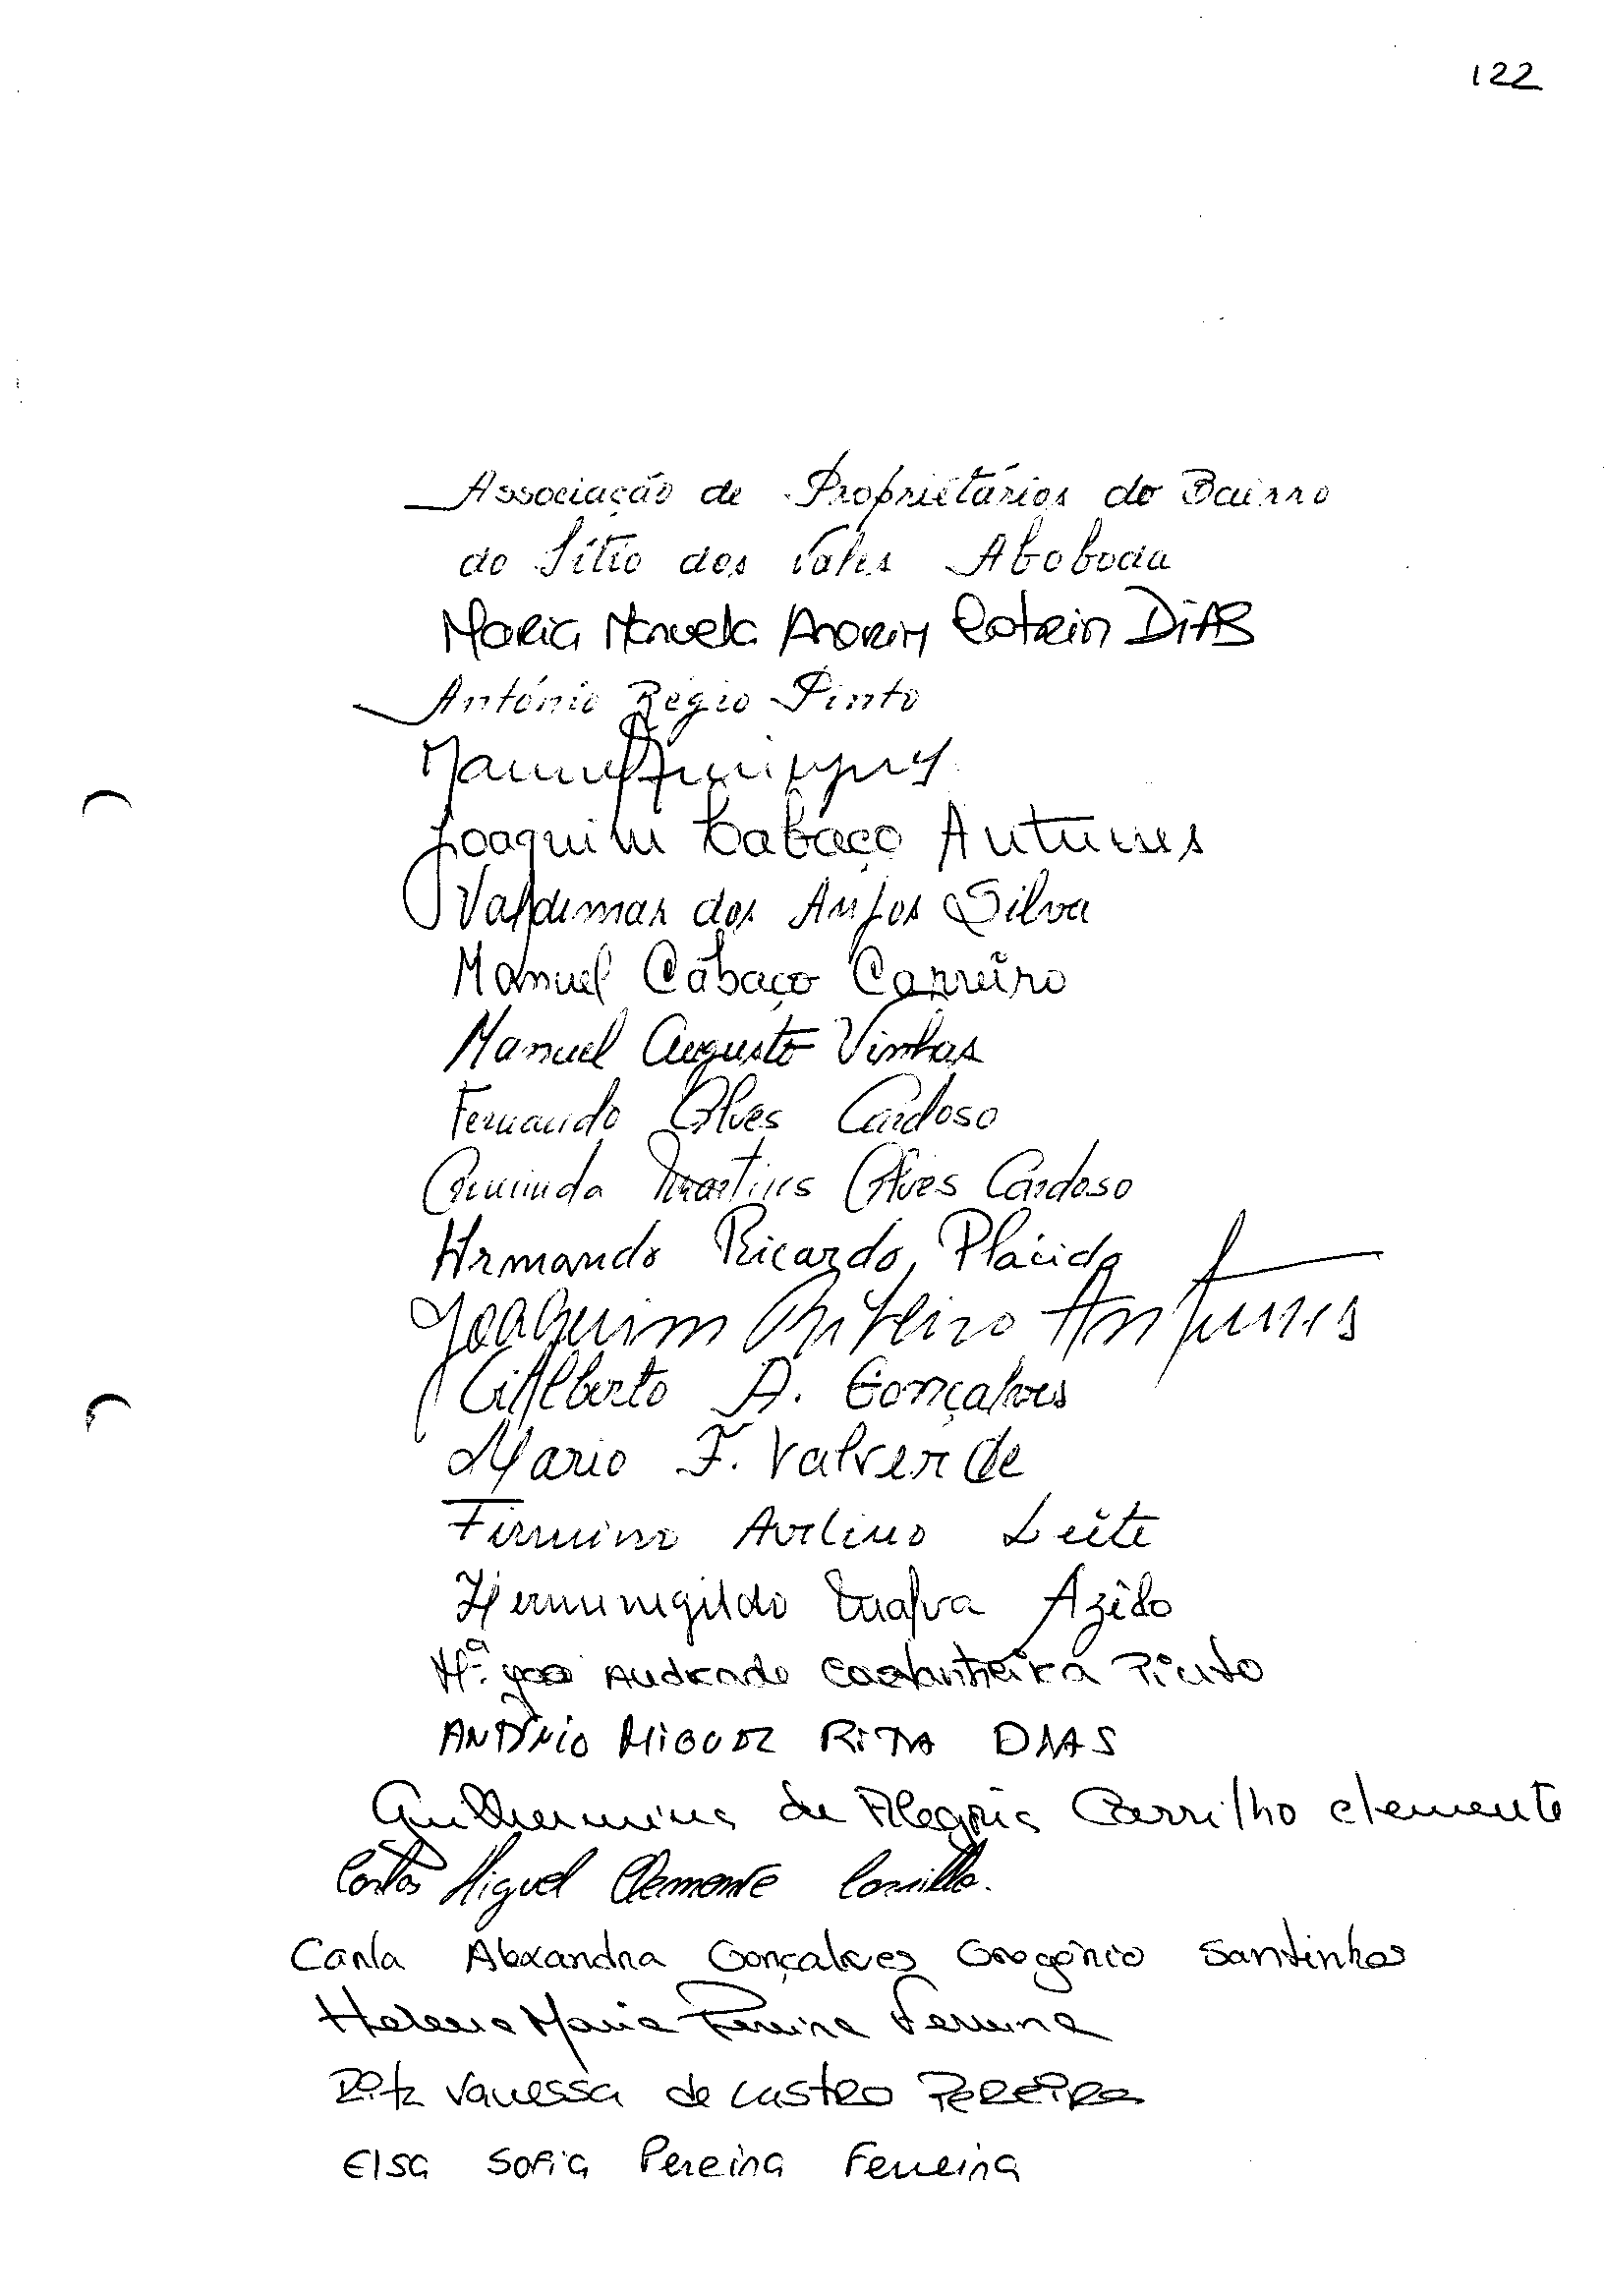 122
Associação de Proprietários do Bairro
do Sítio dos Vales Aboboda
Maria Manuela Amorim DiAS
António Régio Pinto
Joaquim Cabaço Antunes
Valdemar dos Anjos Silva
Manuel Cabaço Carreiro
Manuel Augusto Vinhas
Fernando Alves Cardoso
Martins Alves Cardoso
Armando Ricardo Plácido
Joaquim Ribeiro Antunes
Gilberto A. Gonçalves
Mario F. Valverde
Firmino Avelino Leite
Hermenegildo Malva Azêdo
Mª. Andrade Castanheira Pinto
ANTÓNIO MIGUEL RITA DIAS
Guilhermina da Alegria Carrilho clemente
Carlos Miguel Clemente Carrilho.
Carla Alexandra Gonçalves Gregório Santinhos
Helena Maria Pereira Ferreira
Rita Vanessa de Castro PEREIRA
Elsa Sofia Pereira Ferreira